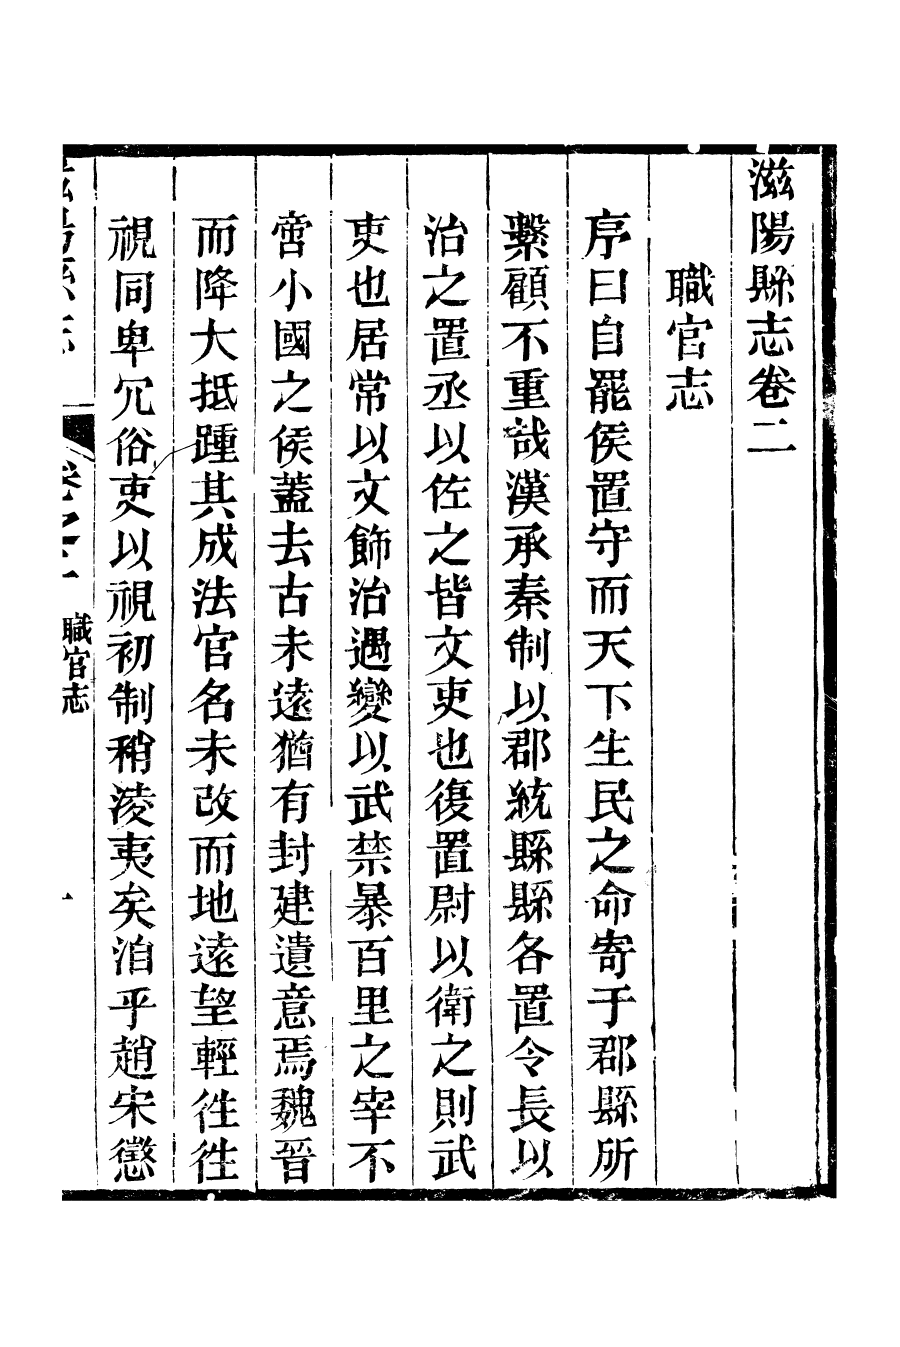 滋陽縣志卷二
職官志
序曰自罷侯置守而天下生民之命寄于郡縣所
繫顧不重哉漢承秦制以郡統縣縣各置令長以
治之置丞以佐之皆文吏也復置尉以衛之則武
吏也居常以文飾治遇變以武禁暴百里之宰不
啻小國之侯蓋去古未遠猶有封建遺意焉魏晉
而降大抵踵其成法官名未改而地遠望輕徃徃
視同卑冗俗吏以視初制稍淩夷矣洎乎趙宋懲
滋陽縣志 卷之二 職官志 一